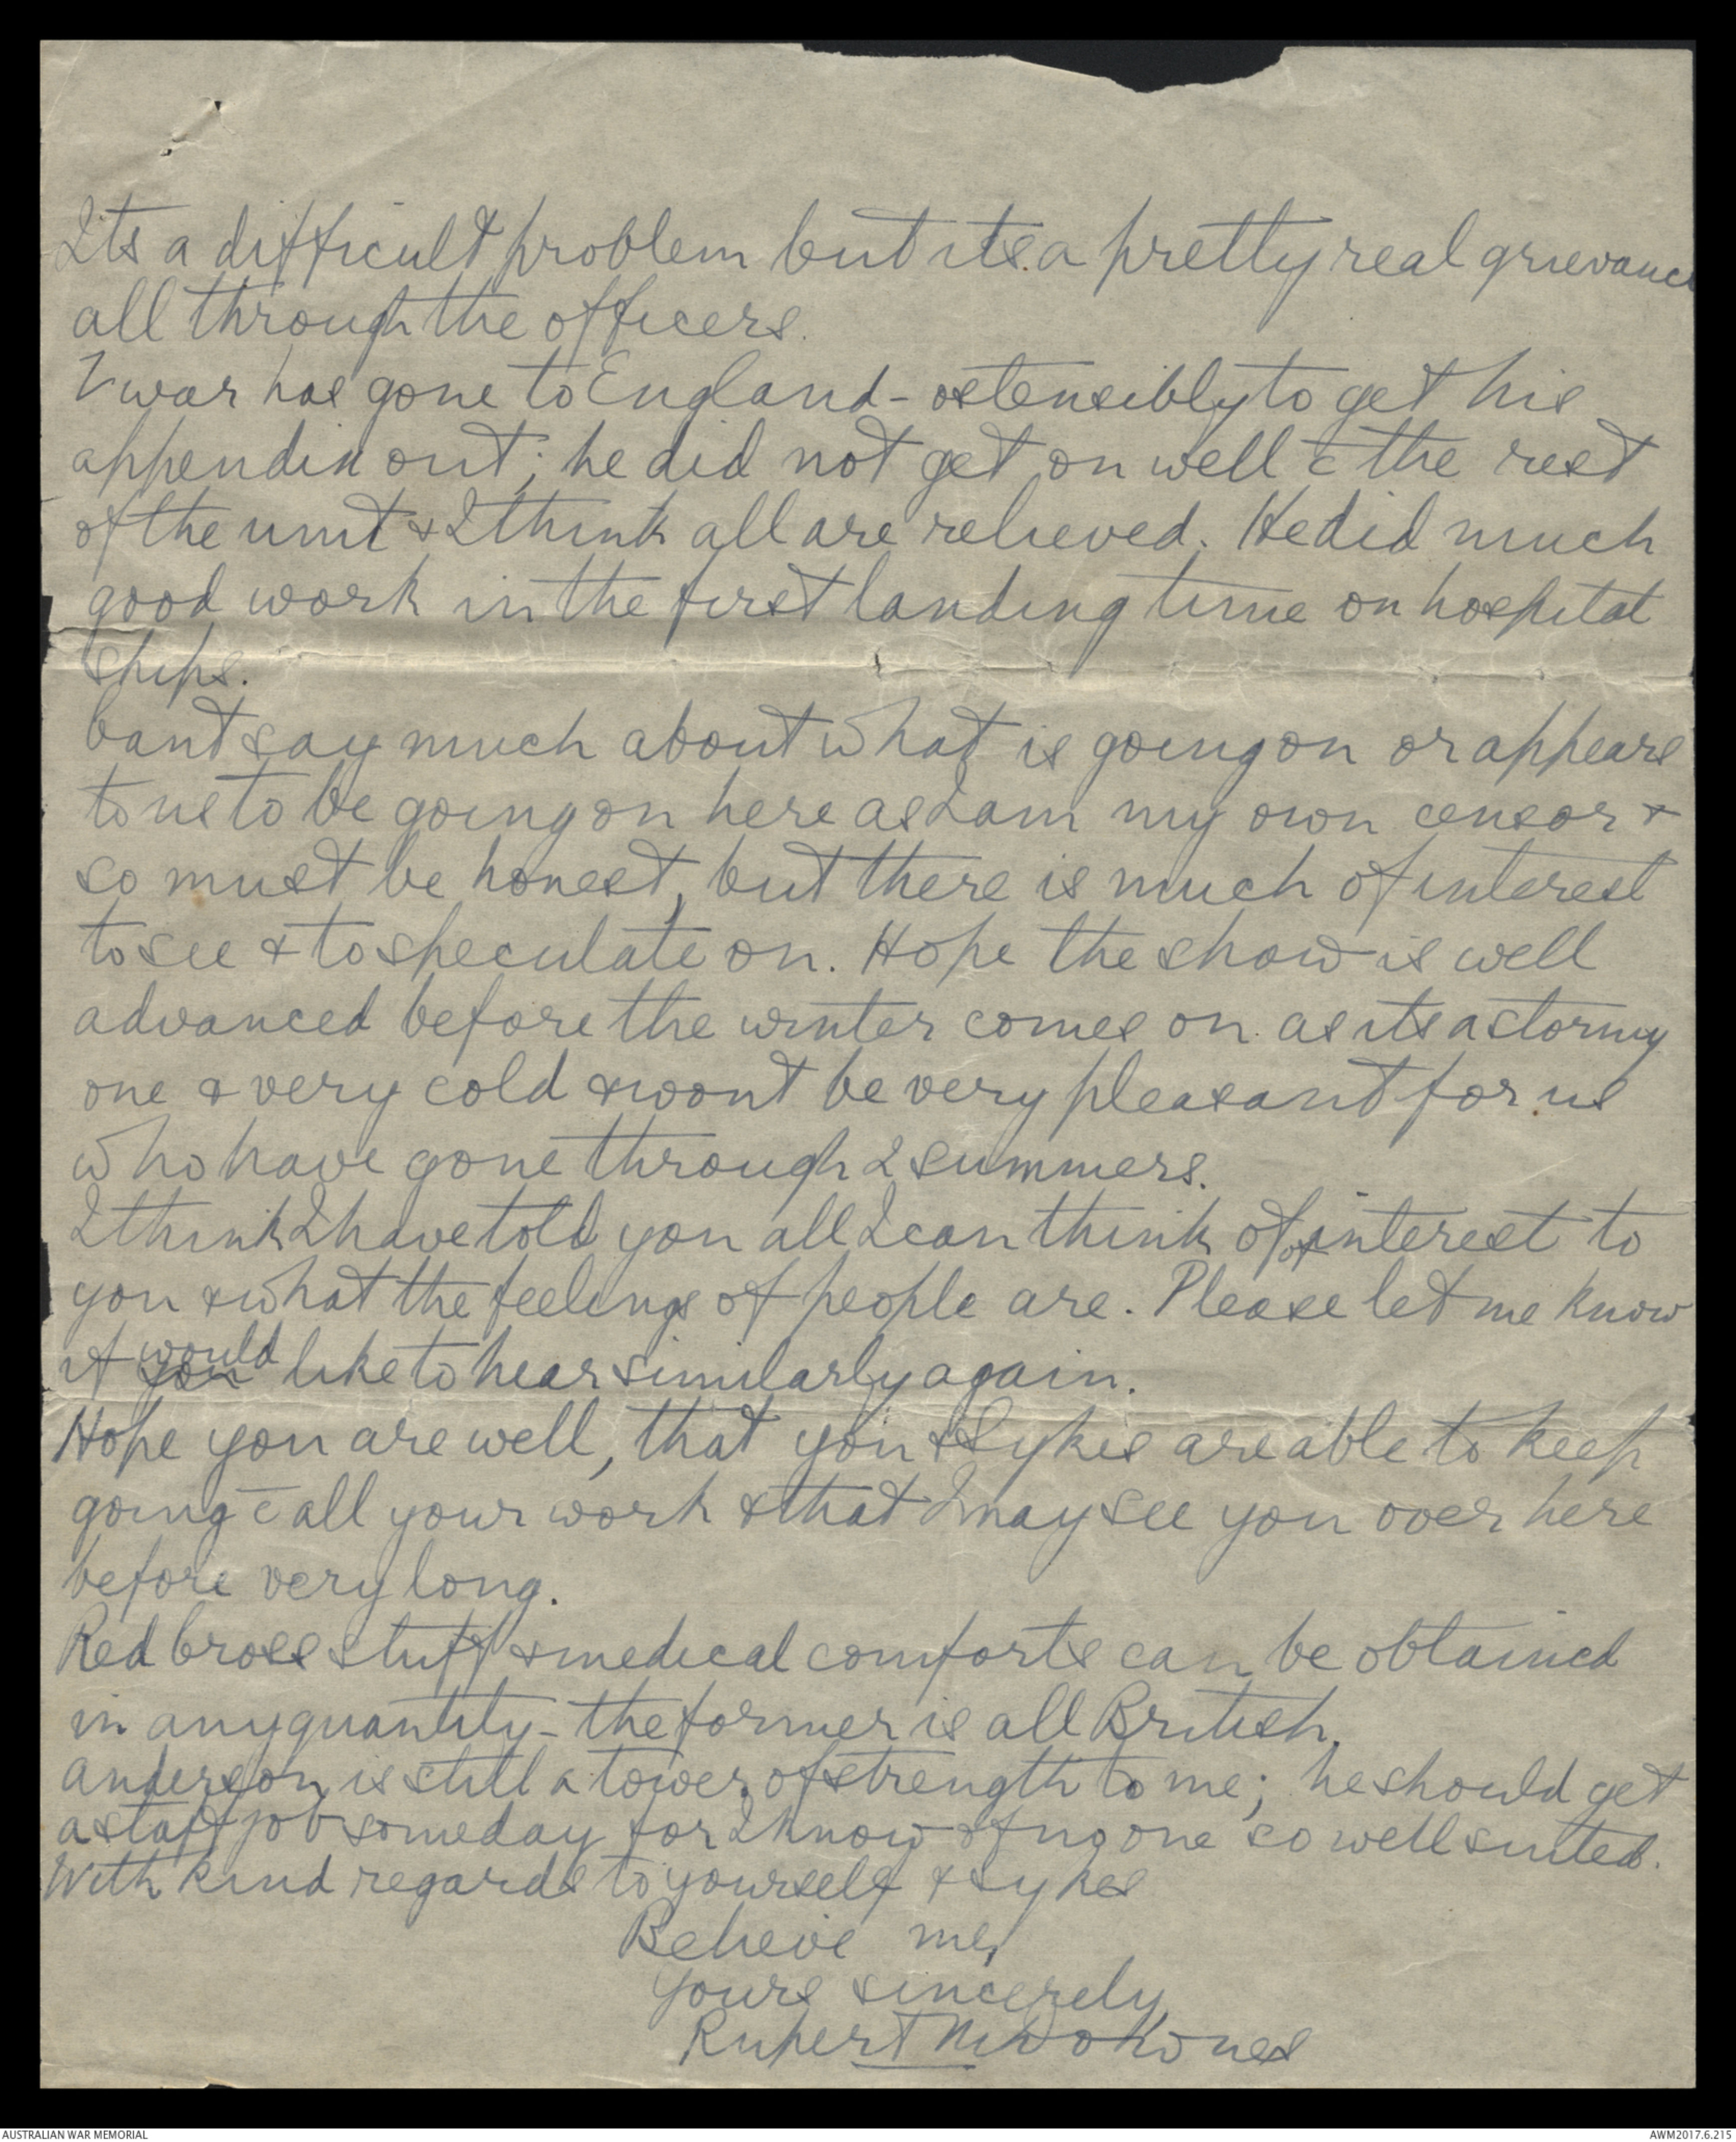 Its a difficult problem but its a pretty real grievance
all through the officers.
has gone to England - ostensibly to get his
appendix out; he did not get on well c̄ the rest
of the unit & I think all are relieved. He did much
good work in the first landing time on hospital
ships.
Cant say much about what is going on or appears
to us to be going on here as I am my own censor &
so must be honest, but there is much of interest
to see & to speculate on. Hope the show is well
advanced before the winter comes on as its a stormy
one & very cold & wont be very pleasant for us
who have gone through 2 summers.
I think I have told you all I can think of of interest to
you & what the feelings of people are. Please let me know
if you would like to hear similarly again.
Hope you are well, that you & Sykes are able to keep
going c̄ all your work & that I may see you over here
before very long.
Red Cross stuff & medical comforts can be obtained
in any quantity - the former is all British.
Anderson is still a tower of strength to me; he should get
a staff job someday for I know of no one so well suited.
With kind regards to yourself & Sykes
Believe me,
Yours sincerely,
Rupert
AUSTRALIAN WAR MEMORIAL
AWM2017.6.215